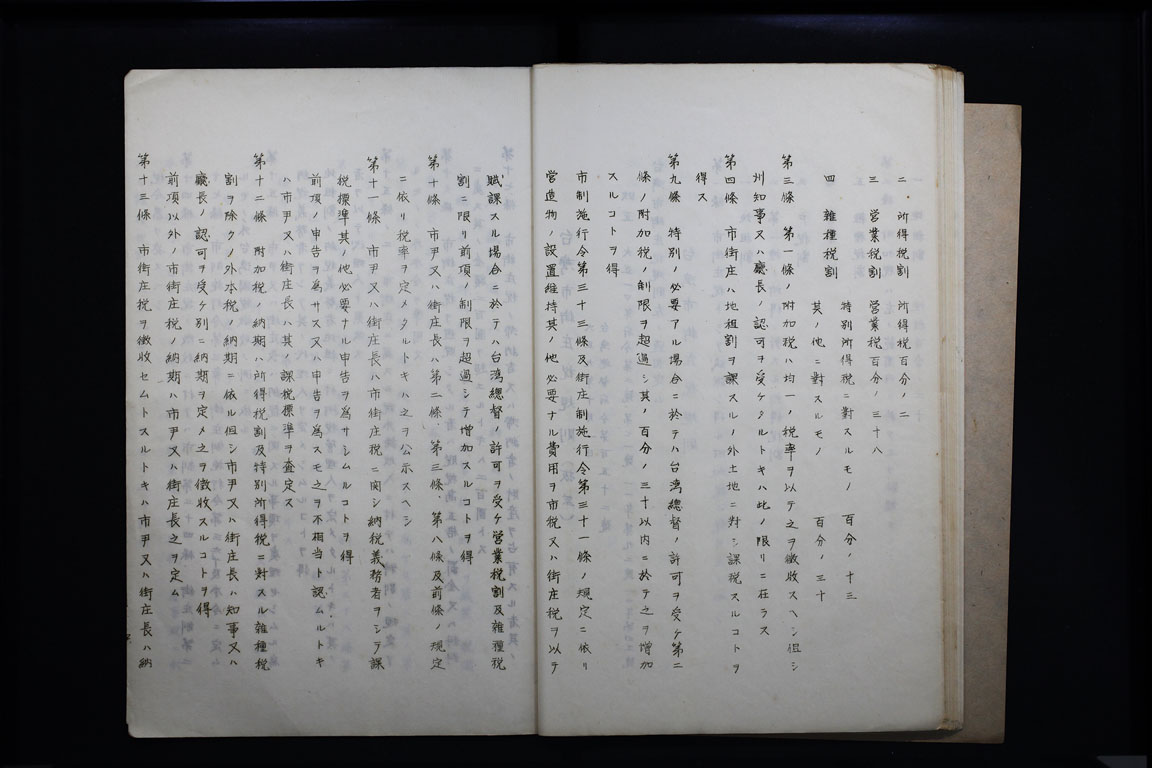 二 所得税割 所得税百分ノ二
三 営業税割 営業税百分ノ三十八
四 雑種税割 特別所得税ニ対スルモノ 百分ノ十三
其ノ他ニ對スルモノ 百分ノ三十
第三條 第一條ノ附加税ハ均一ノ税率ヲ以テ之ヲ徴收スヘシ但シ
州知事又ハ廳長ノ認可ヲ受ケタルトキハ此ノ限リニ在ラス
第四條 市街庄ハ地租割ヲ課スルノ外土地ニ對シ課税スルコトヲ
得ス
第九條 特別ノ必要アル場合ニ於テハ台湾總督ノ許可ヲ受ケ第二
條ノ附加税ノ制限ヲ超過シ其ノ百分ノ三十以内ニ於テ之ヲ増加
スルコトヲ得
市制施行令第三十三條及街庄制施行令第三十一條ノ規定ニ依リ
営造物ノ設置維持其ノ他必要ナル費用ヲ市税又ハ街庄税ヲ以テ
賦課スル場合ニ於テハ台湾總督ノ許可ヲ受ケ営業税割及雑種税
割ニ限リ前項ノ制限ヲ超過シテ増加スルコトヲ得
第十條 市尹又ハ街庄長ハ第二條、第三條、第八條及前條ノ規定
ニ依リ税率ヲ定メタルトキハ之ヲ公示スヘシ
第十一條 市尹又ハ街庄長ハ市街庄税ニ関シ納税義務者ヲシテ課
税標準其ノ他必要ナル申告ヲ為サシムルコトヲ得
前項ノ申告ヲ為サス又ハ申告ヲ為スモ之ヲ不相当ト認ムルトキ
ハ市尹又ハ街庄長ハ其ノ課税標準ヲ査定ス
第十二條 附加税ノ納期ハ所得税割及特別所得税ニ對スル雑種税
割ヲ除クノ外本税ノ納期ニ依ル但シ市尹又ハ街庄長ハ知事又ハ
廳長ノ認可ヲ受ケ別ニ納期ヲ定メ之ヲ徴收スルコトヲ得
前項以外ノ市街庄税ノ納期ハ市尹又ハ街庄長之ヲ定ム
第十三條 市街庄税ヲ徴收セムトスルトキハ市尹又ハ街庄長ハ納